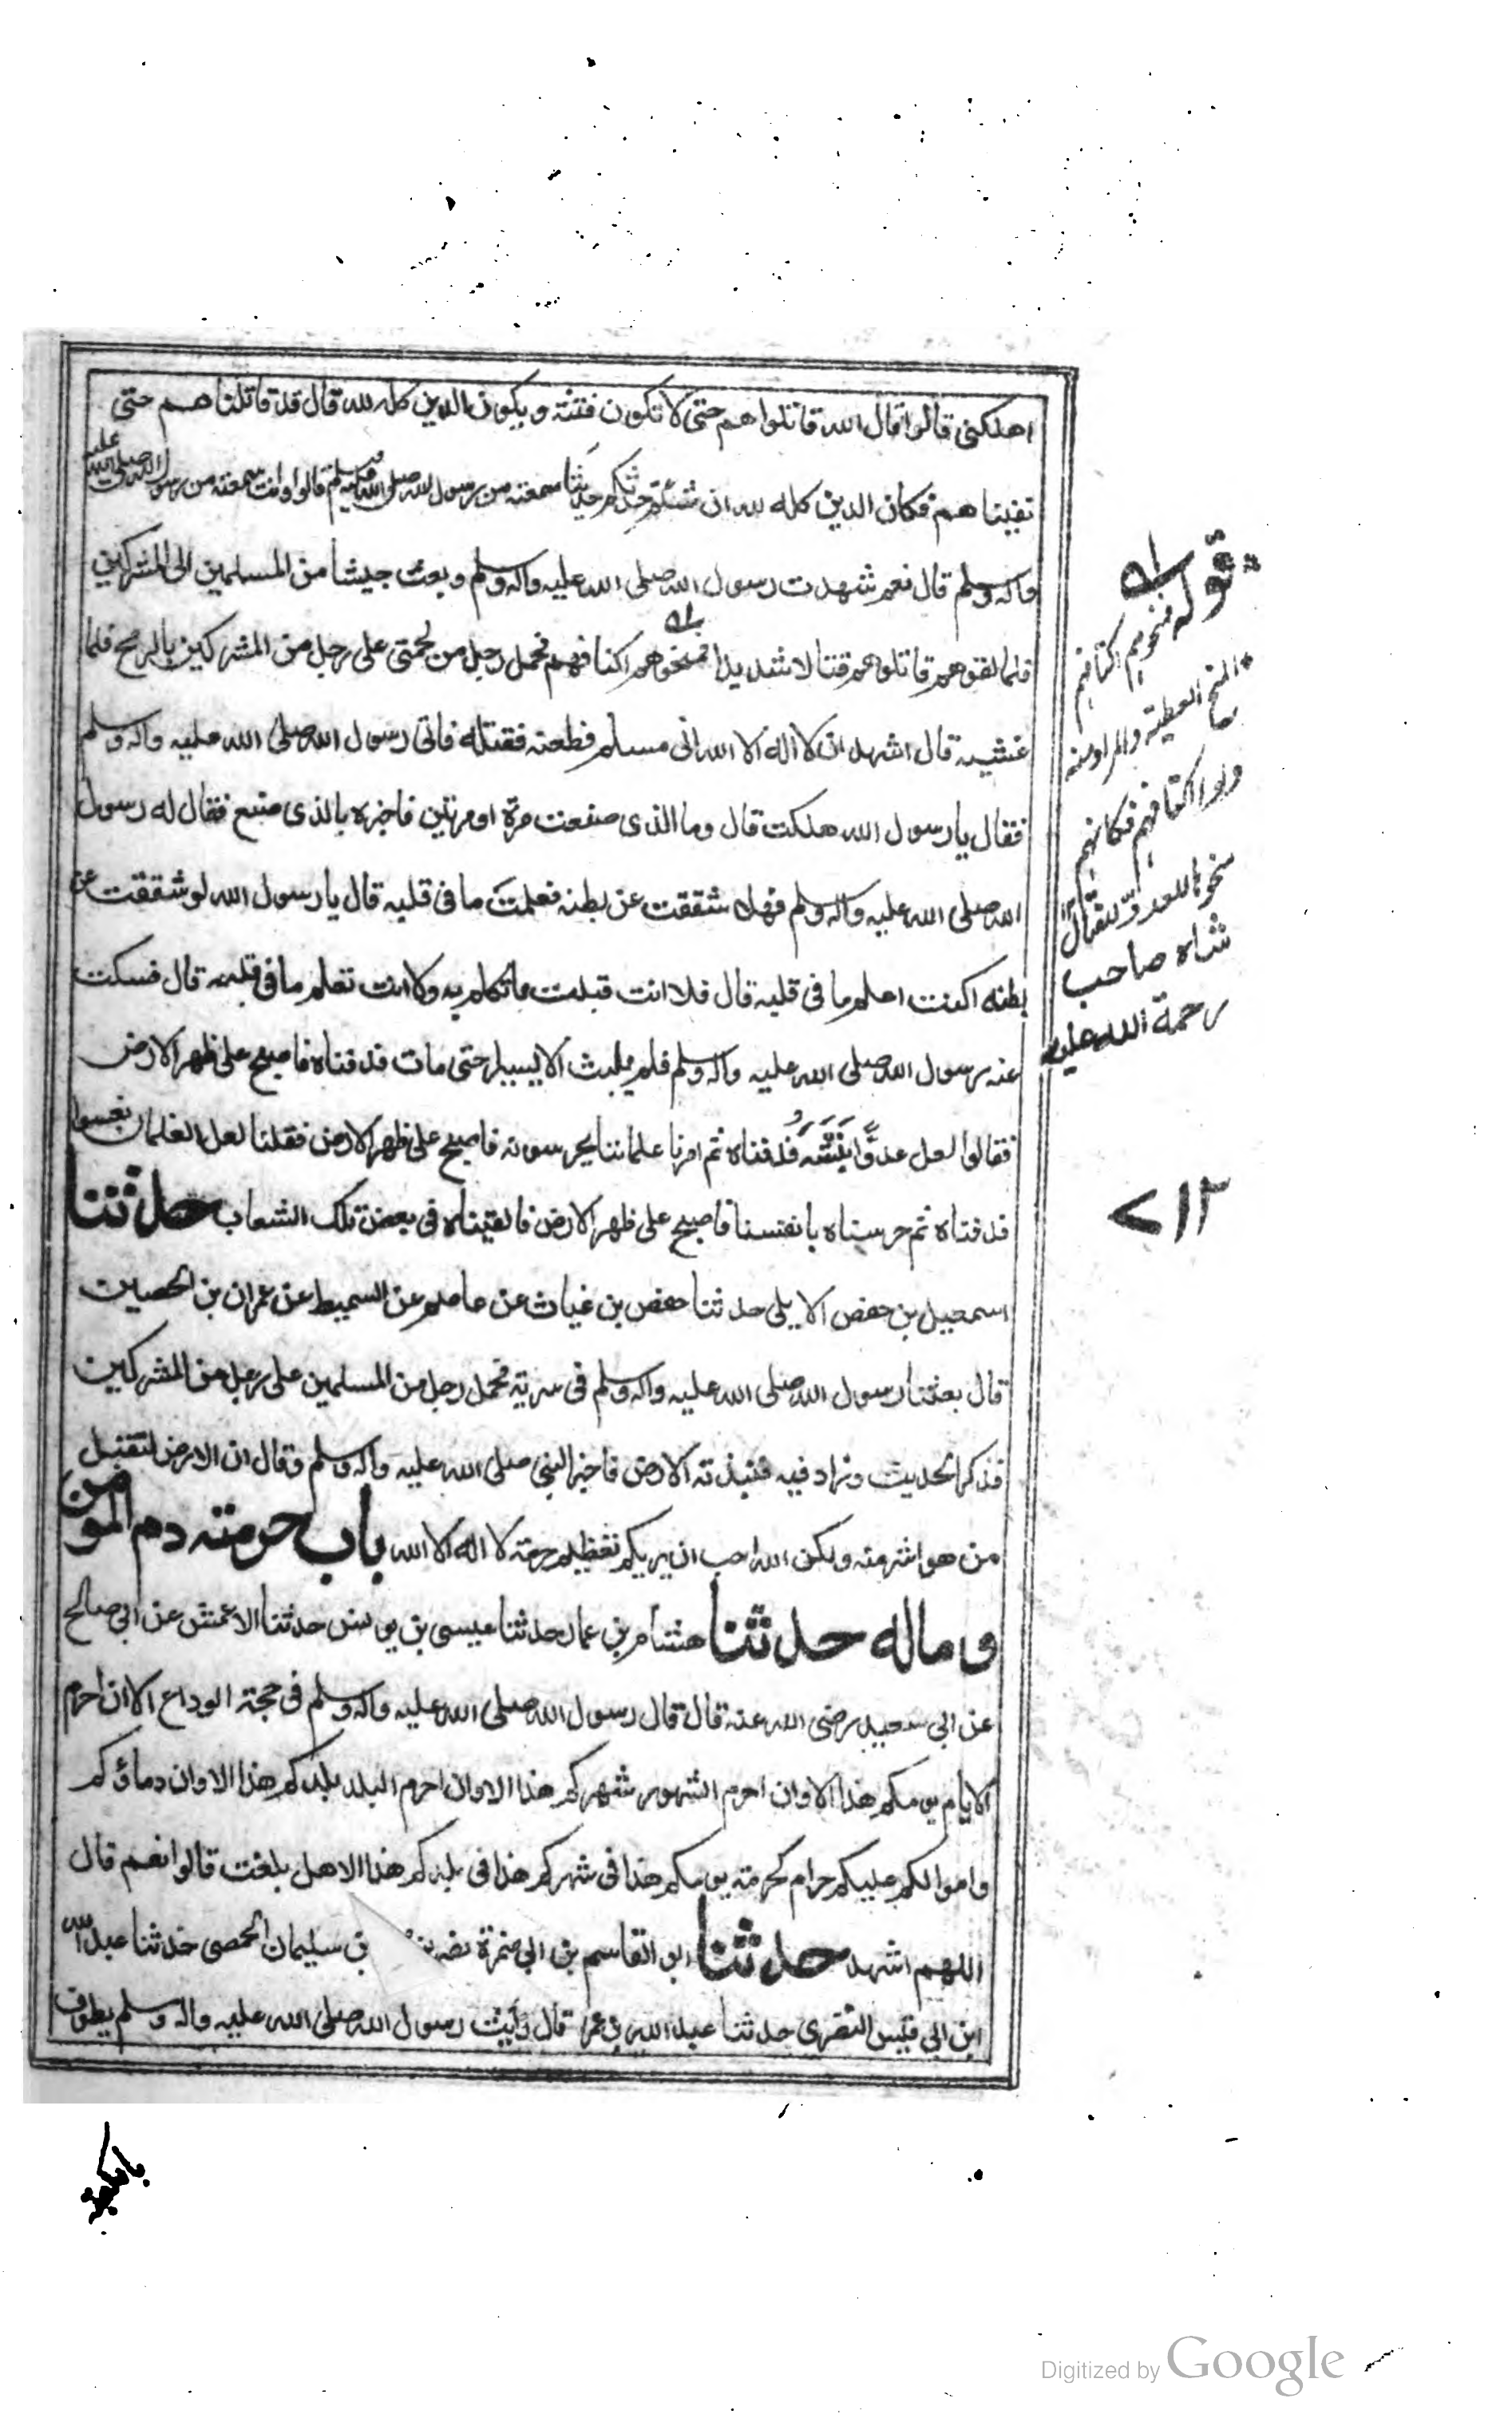 اهلكنى قالوا قال الله قاتلوا هم حتى لا تكون فتنة ويكون الدين كله لله قال قد قاتلنا هم حتى
نفينا هم فكان الدين كله لله ان شئتم حدثتكم حديثا سمعته من رسول الله صلى الله عليه وسلم قالوا وانت سمعته من رسول الله صلى الله عليه
واله وسلم قال نعم شهدت رسول الله صلى الله عليه واله وسلم وبعث جيشا من المسلمين الى المشركين
فلما لقوهم قاتلوهم قتالا شديدا فمنحوهم اكتافهم فحمل رجل من لحمتى على رجل من المشركين بالرمح فلما
غشيه قال اشهد ان لا اله الا الله انى مسلم فطعنه فقتله فاتى رسول الله صلى الله عليه واله وسلم
فقال يا رسول الله هلكت قال وما الذى صنعت مرة او مرتين فاخبره بالذى صنع فقال له رسول
الله صلى الله عليه واله وسلم فهلا شققت عن بطنه فعلمت ما فى قلبه قال يا رسول الله لو شققت عن
بطنه اكنت اعلم ما فى قلبه قال فلا انت قبلت ما تكلم به ولا انت تعلم ما فى قلبه قال فسكت
عنه رسول الله صلى الله عليه واله وسلم فلم يلبث الا يسيرا حتى مات فدفناه فاصبح على ظهر الارض
فقالوا لعل عدوا نبشه فدفناه ثم امرنا غلماننا يحرسونه فاصبح على ظهر الارض فقلنا لعل الغلمان نعسوا
فدفناه ثم حرسناه بانفسنا فاصبح على ظهر الارض فالقيناه فى بعض تلك الشعاب حدثنا
اسمعيل بن حفص الايلى حدثنا حفص بن غياث عن عاصم عن السميط عن عمران بن الحصين
قال بعثنا رسول الله صلى الله عليه واله وسلم فى سرية فحمل رجل من المسلمين على رجل من المشركين
فذكر الحديث وزاد فيه فنبذته الارض فاخبر النبى صلى الله عليه واله وسلم وقال ان الارض لتقبل
من هو اشر منه ولكن الله احب ان يريكم تعظيم حرمة لا اله الا الله باب حرمته دم المومن
وماله حدثنا هشام بن عمار حدثنا عيسى بن يونس حدثنا الاعمش عن ابى صالح
عن ابى سعيد رضى الله عنه قال قال رسول الله صلى الله عليه واله وسلم فى حجة الوداع الا ان احرم
الايام يومكم هذا الا وان احرم الشهور شهركم هذا الا وان احرم البلد بلدكم هذا الا وان دماؤكم
واموالكم عليكم حرام كحرمة يومكم هذا فى شهركم هذا فى بلدكم هذا الا هل بلغت قالوا نعم قال
اللهم اشهد حدثنا ابو القاسم بن ابى ضمرة نصر بن سليمان الحمصى حدثنا عبد الله
ابن ابى قيس النصرى حدثنا عبد الله بن عمر قال رأيت رسول الله صلى الله عليه واله وسلم يطوف
قوله فمنحوهم اكتافهم
المنح العطية والمراد منه
ولوا اكتافهم فكانهم
منحوها للعدو للقتال
شاه صاحب
رحمة الله عليه
۷۱۲
بالكعبة
Digitized by Google